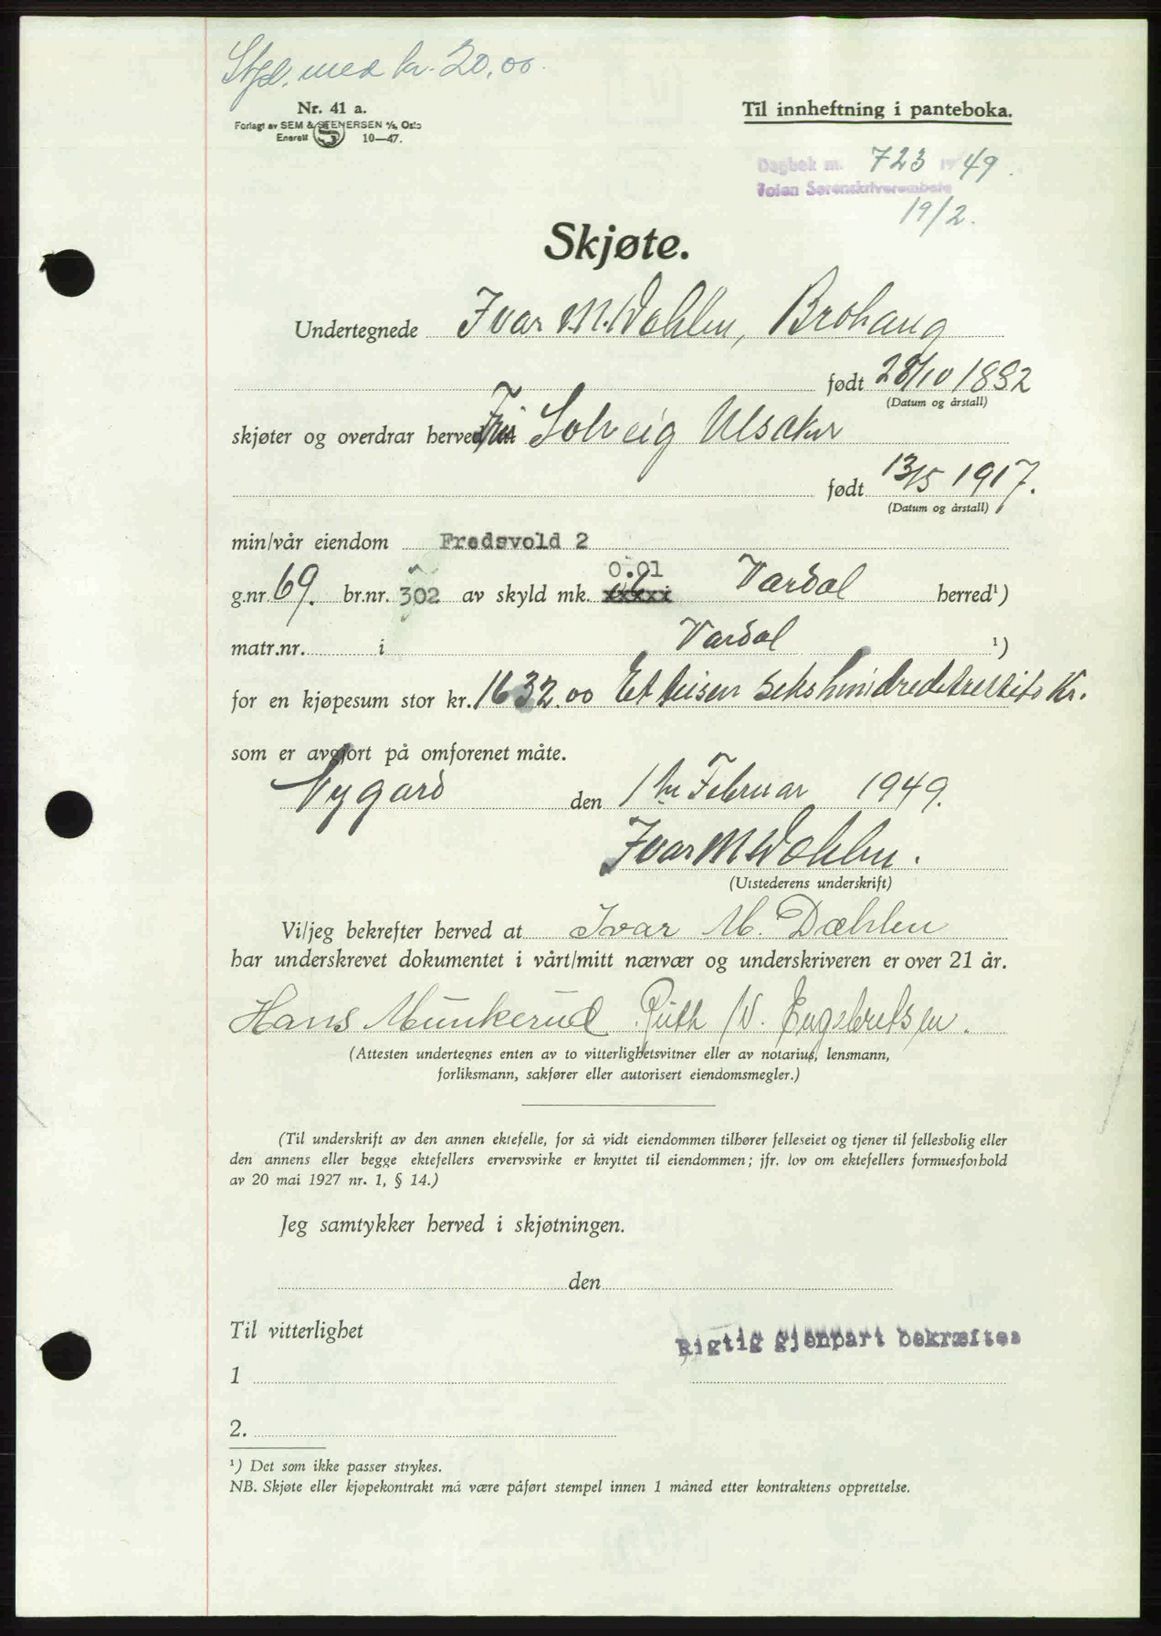 Stpl. med kr. 20,00.
Nr. 41 a.
Forlagt av SEM & STENERSEN A/S, Oslo
Enerett 10—47.
Til innheftning i panteboka.
Dagbok nr. 723 19 49.
Toten Sorenskriverembete
19/2.
Skjøte.
Undertegnede Ivar M. Dæhlen, Brohaug
født 28/10 1882
(Datum og årstall)
skjøter og overdrar herved Solveig Ulsaker
født 13/5 1917.
(Datum og årstall)
min/vår eiendom Fredsvold 2
g.nr. 69. br.nr. 302 av skyld mk. 0.01 Vardal herred¹)
matr.nr. i Vardal ¹)
for en kjøpesum stor kr. 1632.00 Et tusen sekshundredetrettito Kr.
som er avgjort på omforenet måte.
Nygard den 1ste Februar 1949.
Ivar M Dæhlen.
(Utstederens underskrift)
Vi/jeg bekrefter herved at Ivar M. Dæhlen
har underskrevet dokumentet i vårt/mitt nærvær og underskriveren er over 21 år.
Hans Munkerud. Ruth W. Engebretsen.
(Attesten undertegnes enten av to vitterlighetsvitner eller av notarius, lensmann,
forliksmann, sakfører eller autorisert eiendomsmegler.)
(Til underskrift av den annen ektefelle, for så vidt eiendommen tilhører felleseiet og tjener til fellesbolig eller
den annens eller begge ektefellers ervervsvirke er knyttet til eiendommen; jfr. lov om ektefellers formuesforhold
av 20 mai 1927 nr. 1, § 14.)
Jeg samtykker herved i skjøtningen.
den
Til vitterlighet
Rigtig gjenpart bekræftes
1
2.
¹) Det som ikke passer strykes.
NB. Skjøte eller kjøpekontrakt må være påført stempel innen 1 måned etter kontraktens opprettelse.